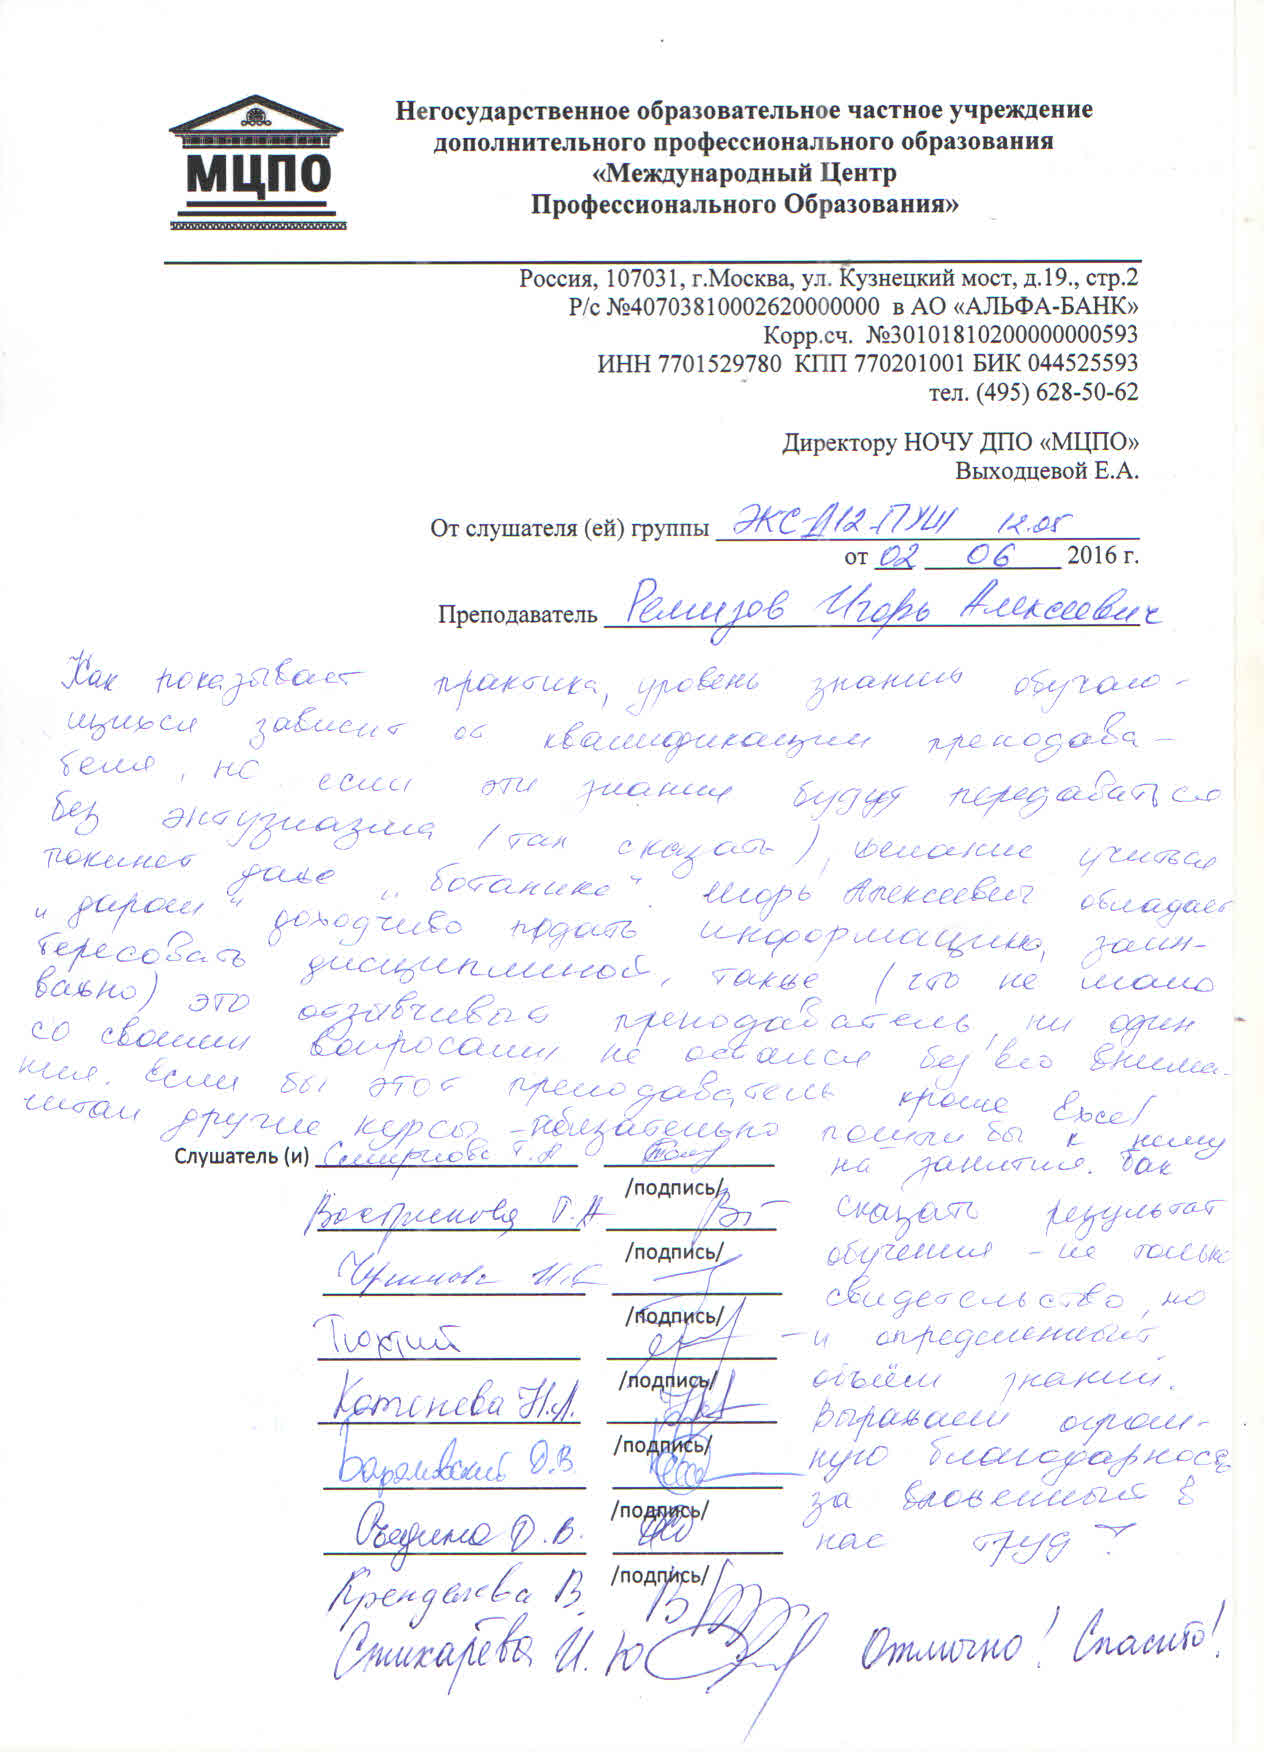 МЦПО
Негосударственное образовательное частное учреждение
дополнительного профессионального образования
«Международный Центр
Профессионального Образования»
Россия, 107031, г.Москва, ул. Кузнецкий мост, д.19., стр.2
Р/с №40703810002620000000 в АО «АЛЬФА-БАНК»
Корр.сч. №30101810200000000593
ИНН 7701529780 КПП 770201001 БИК 044525593
тел. (495) 628-50-62
Директору НОЧУ ДПО «МЦПО»
Выходцевой Е.А.
От слушателя (ей) группы ЭКС-Д12-ПУШ 12.05
от 02 06 2016 г.
Преподаватель Ремизов Игорь Алексеевич
Как показывает практика, уровень знаний обучаю-
щихся зависит от квалификации преподава-
теля, но если эти знания будут передаваться
без энтузиазма (так сказать), желание учиться
покинет даже „ботаника“. Игорь Алексеевич обладает
„даром“ доходчиво подать информацию, заин-
тересовать дисциплиной, также (что не мало
важно) это отзывчивый преподаватель, ни один
со своими вопросами не остался без его внима-
ния. Если бы этот преподаватель кроме Excel
читал другие курсы - обязательно пошли бы к нему
на занятия. Так
сказать результат
обучения - не только
свидетельство, но
- и определенный
объём знаний.
Выражаем огром-
ную благодарность
за вложенный в
нас труд!
Слушатель (и) Смирнова Т.А
/подпись/
Вострикова Г.А
/подпись/
/подпись/
/подпись/
Котенева Н.Л.
/подпись/
Д.В.
/подпись/
Очедина О.В.
/подпись/
Кренделева В.
Стихарёва И.Ю
Отлично! Спасибо!